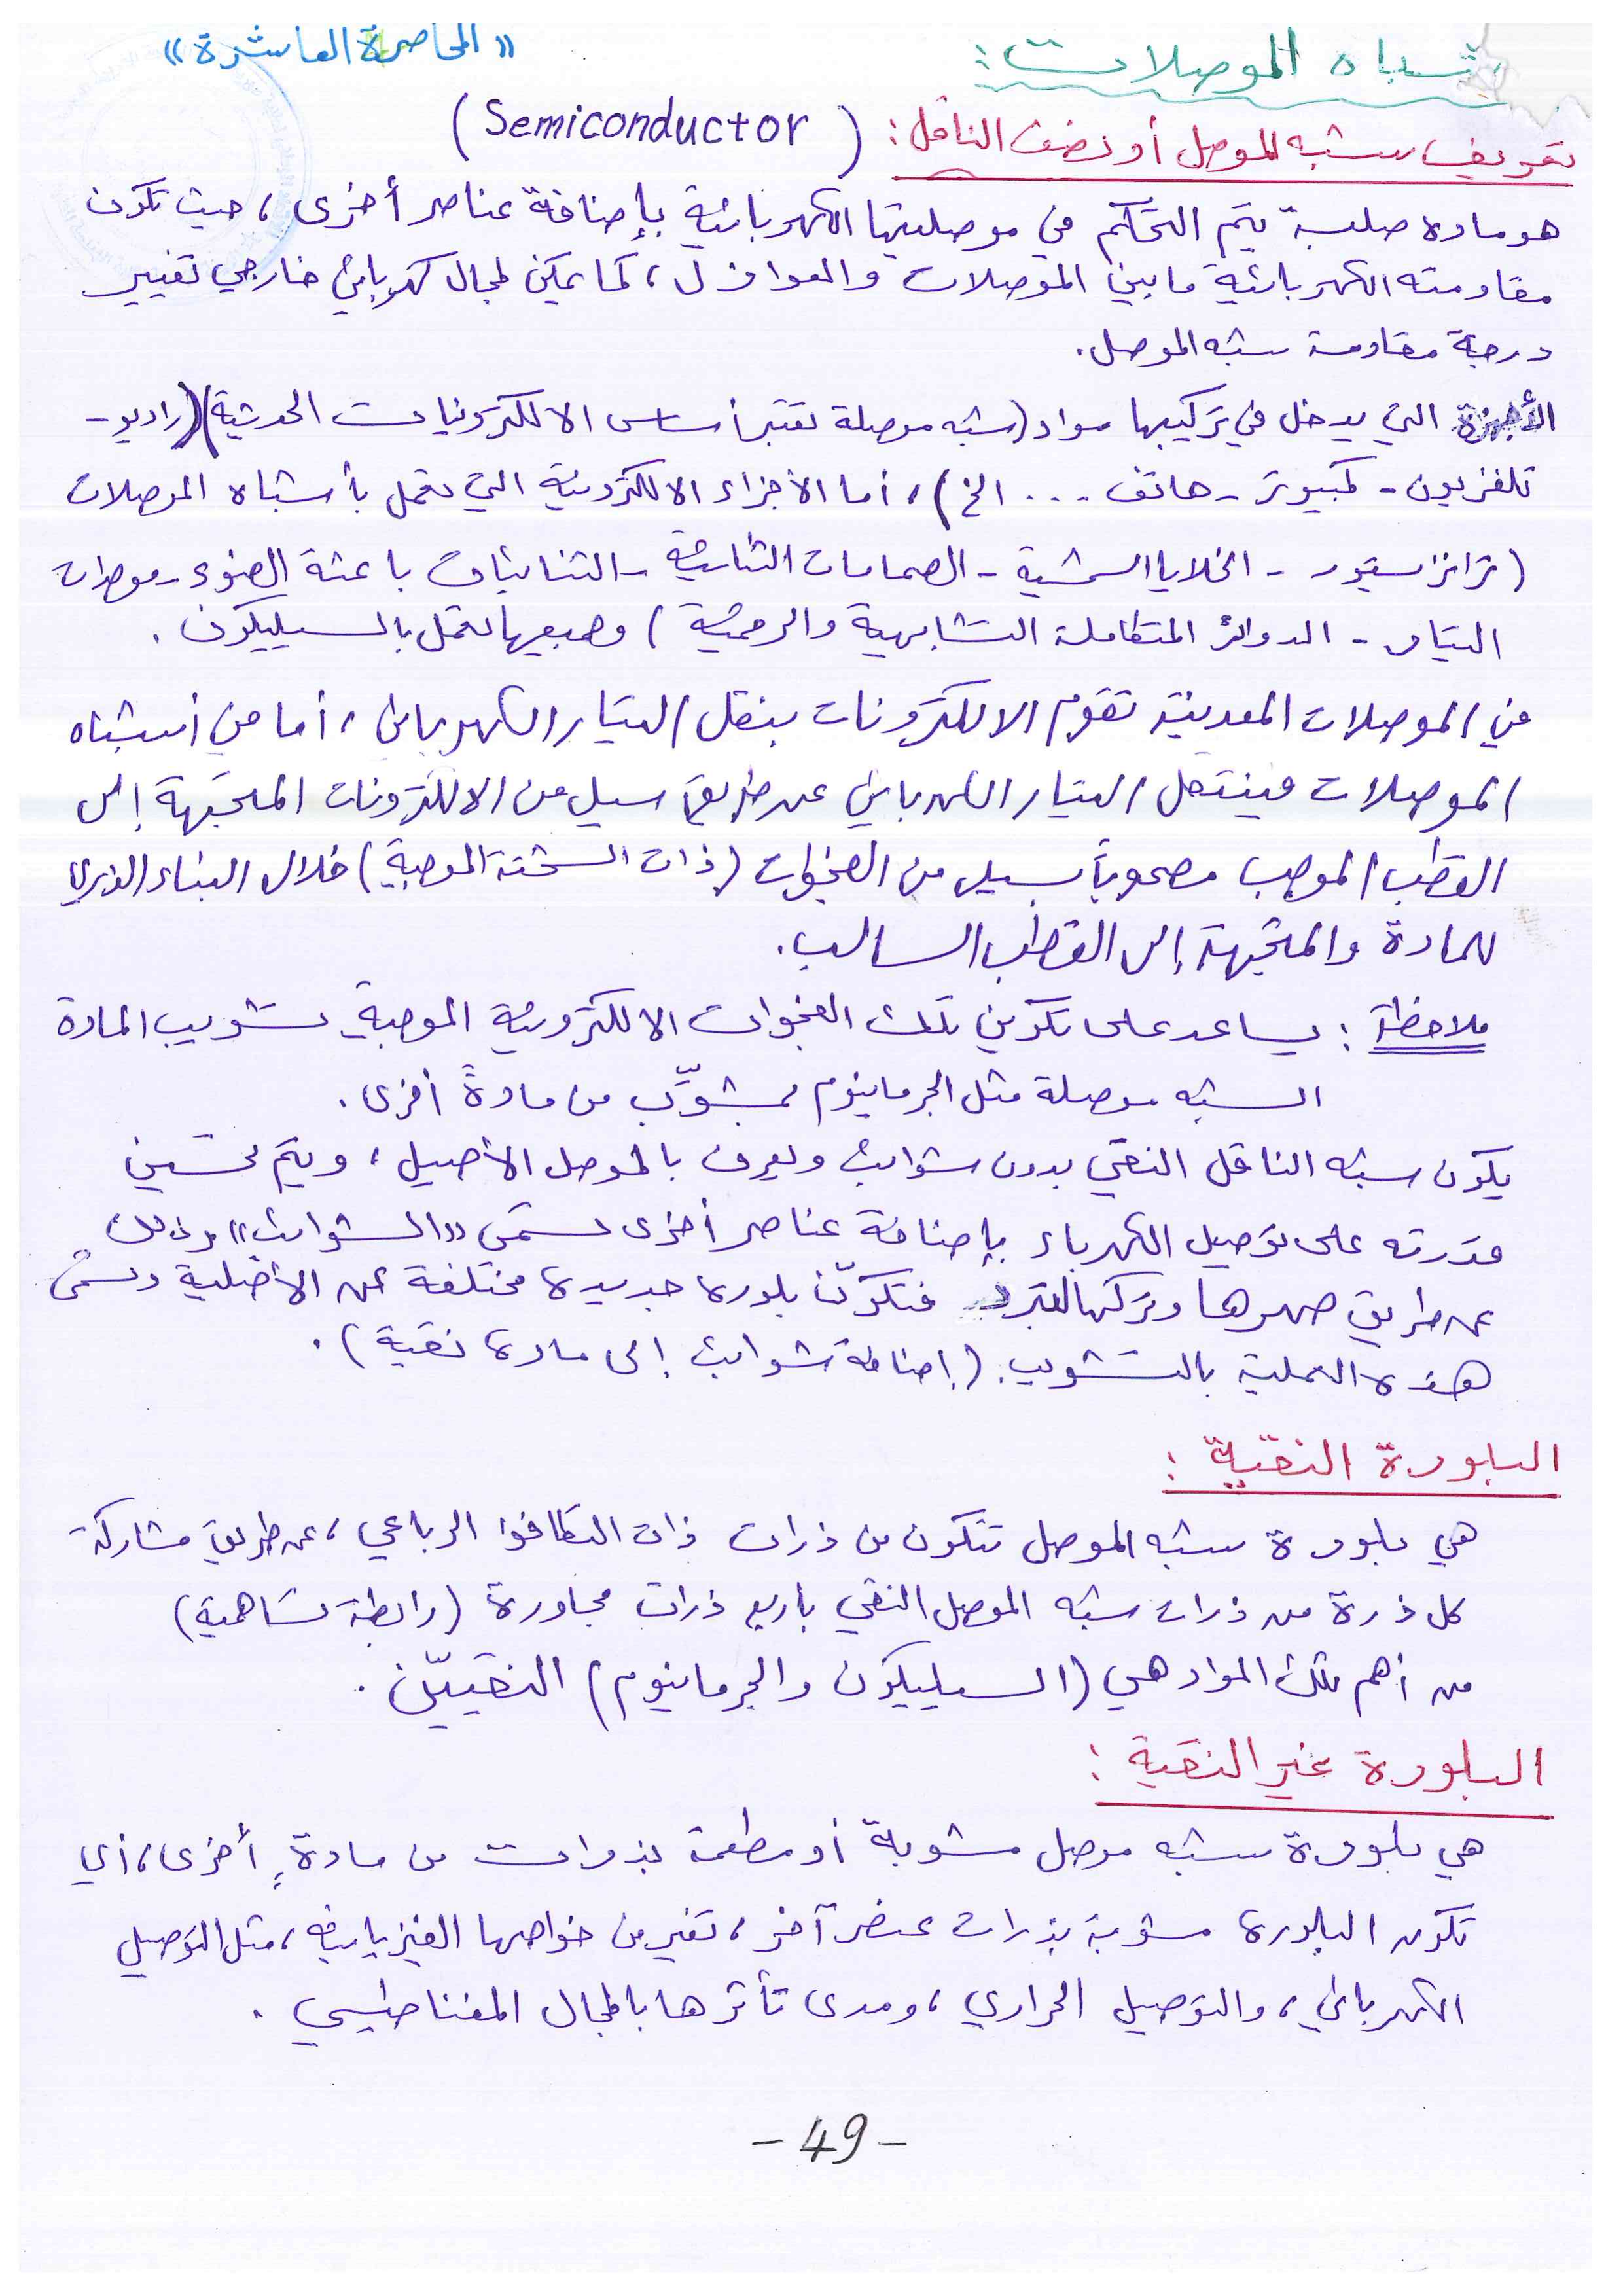 « المحاضرة العاشرة »
أشباه الموصلات :
تعريف شبه الموصل أو نصف الناقل : ( Semiconductor )
هو مادة صلبة يتم التحكم في موصليتها الكهربائية بإضافة عناصر أخرى ، حيث تكون
مقاومته الكهربائية ما بين الموصلات والعوازل ، كما يمكن لمجال كهربائي خارجي تغيير
درجة مقاومة شبه الموصل .
الأجهزة التي يدخل في تركيبها مواد (شبه موصلة تعتبر أساس الالكترونيات الحديثة) (راديو -
تلفزيون - كمبيوتر - هاتف ... الخ) ، أما الأجزاء الالكترونية التي تعمل بأشباه الموصلات
(ترانزستور - الخلايا الشمسية - الصمامات الثنائية - الثنائيات باعثة الضوء - موحدات
التيار - الدوائر المتكاملة التشابهية والرقمية ) وجميعها تعمل بالسيليكون .
في الموصلات المعدنية تقوم الالكترونات بنقل التيار الكهربائي ، أما في أشباه
الموصلات فينتقل التيار الكهربائي عن طريق سيل من الالكترونات المتجهة إلى
القطب الموجب مصحوباً بسيل من الفجوات (ذات الشحنة الموجبة) خلال البناء الذري
للمادة والمتجهة إلى القطب السالب .
ملاحظة : يساعد على تكوين تلك الفجوات الالكترونية الموجبة تشويب المادة
الشبه موصلة مثل الجرمانيوم بشوائب من مادةٍ أخرى .
يكون شبه الناقل النقي بدون شوائب ويعرف بالموصل الأصيل ، ويتم تحسين
قدرته على توصيل الكهرباء بإضافة عناصر أخرى تسمّى «الشوائب» وذلك
عن طريق صهرها وتركها لتبرد فتتكوّن بلورة جديدة مختلفة عن الأصلية وتسمّى
هذه العملية بالتشويب . (إضافة شوائب إلى مادة نقية) .
البلورة النقيّة :
هي بلورة شبه الموصل تتكون من ذرات ذات التكافؤ الرباعي ، عن طريق مشاركة
كل ذرة من ذرات شبه الموصل النقي باربع ذرات مجاورة (رابطة تساهمية)
من أهم تلك المواد هي (السيليكون والجرمانيوم) النقييّن .
البلورة غير النقية :
هي بلورة شبه موصل مشوبة أو مطعمة بذرات من مادةٍ أخرى ، أي
تكون البلورة مشوبة بذرات عنصر آخر ، تغير من خواصها الفيزيائية ، مثل التوصيل
الكهربائي ، والتوصيل الحراري ، ومدى تأثرها بالمجال المغناطيسي .
- 49 -